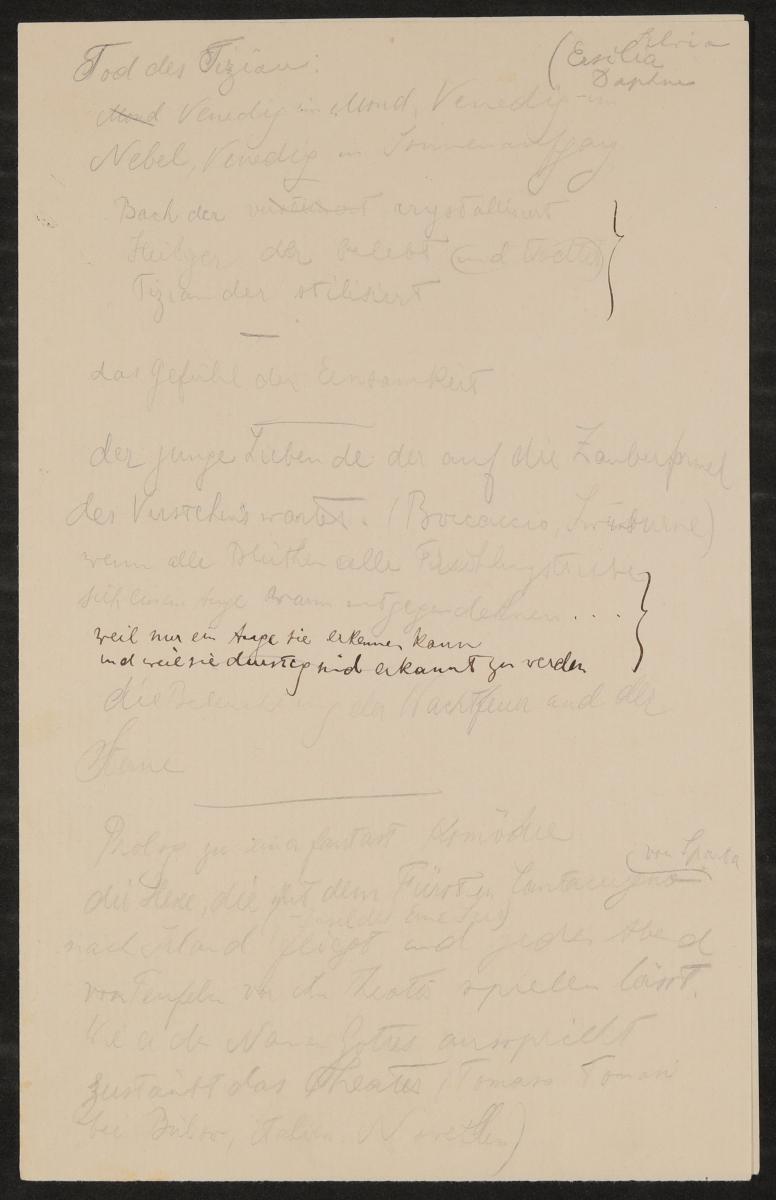 Tod des Tizian:
(Ersilia Silvia
Daphne
Mond Venedig im Mond, Venedig im
Nebel, Venedig im Sonnenaufgang
Bach der versteinert crystallisiert
Heiliger der belebt (und tödtet)
Tizian der stilisiert
das Gefühl der Einsamkeit
der junge Liebende der auf die Zauberformel
des Verstehens wartet. (Boccaccio, Swinburne)
wenn alle Blüthen alle Frühlingstriebe
sich einem Auge warm entgegendehnen ....
weil nur ein Auge sie erkennen kann
und weil sie durstig sind erkannt zu werden
die Beleuchtung der Wachtfeuer und der
Sterne
Prolog zu einer fantast Komödie
die Hexe, die mit dem Fürsten Cantacuzeno
von Sparta
nach Irland fliegt und jeden Abend
von Teufeln vor ihr Theater spielen lässt.
Wie er den Namen Gottes ausspricht
zustäubt das Theater (Tomaso Tomasi
bei Bülow, Italien. Novellen)